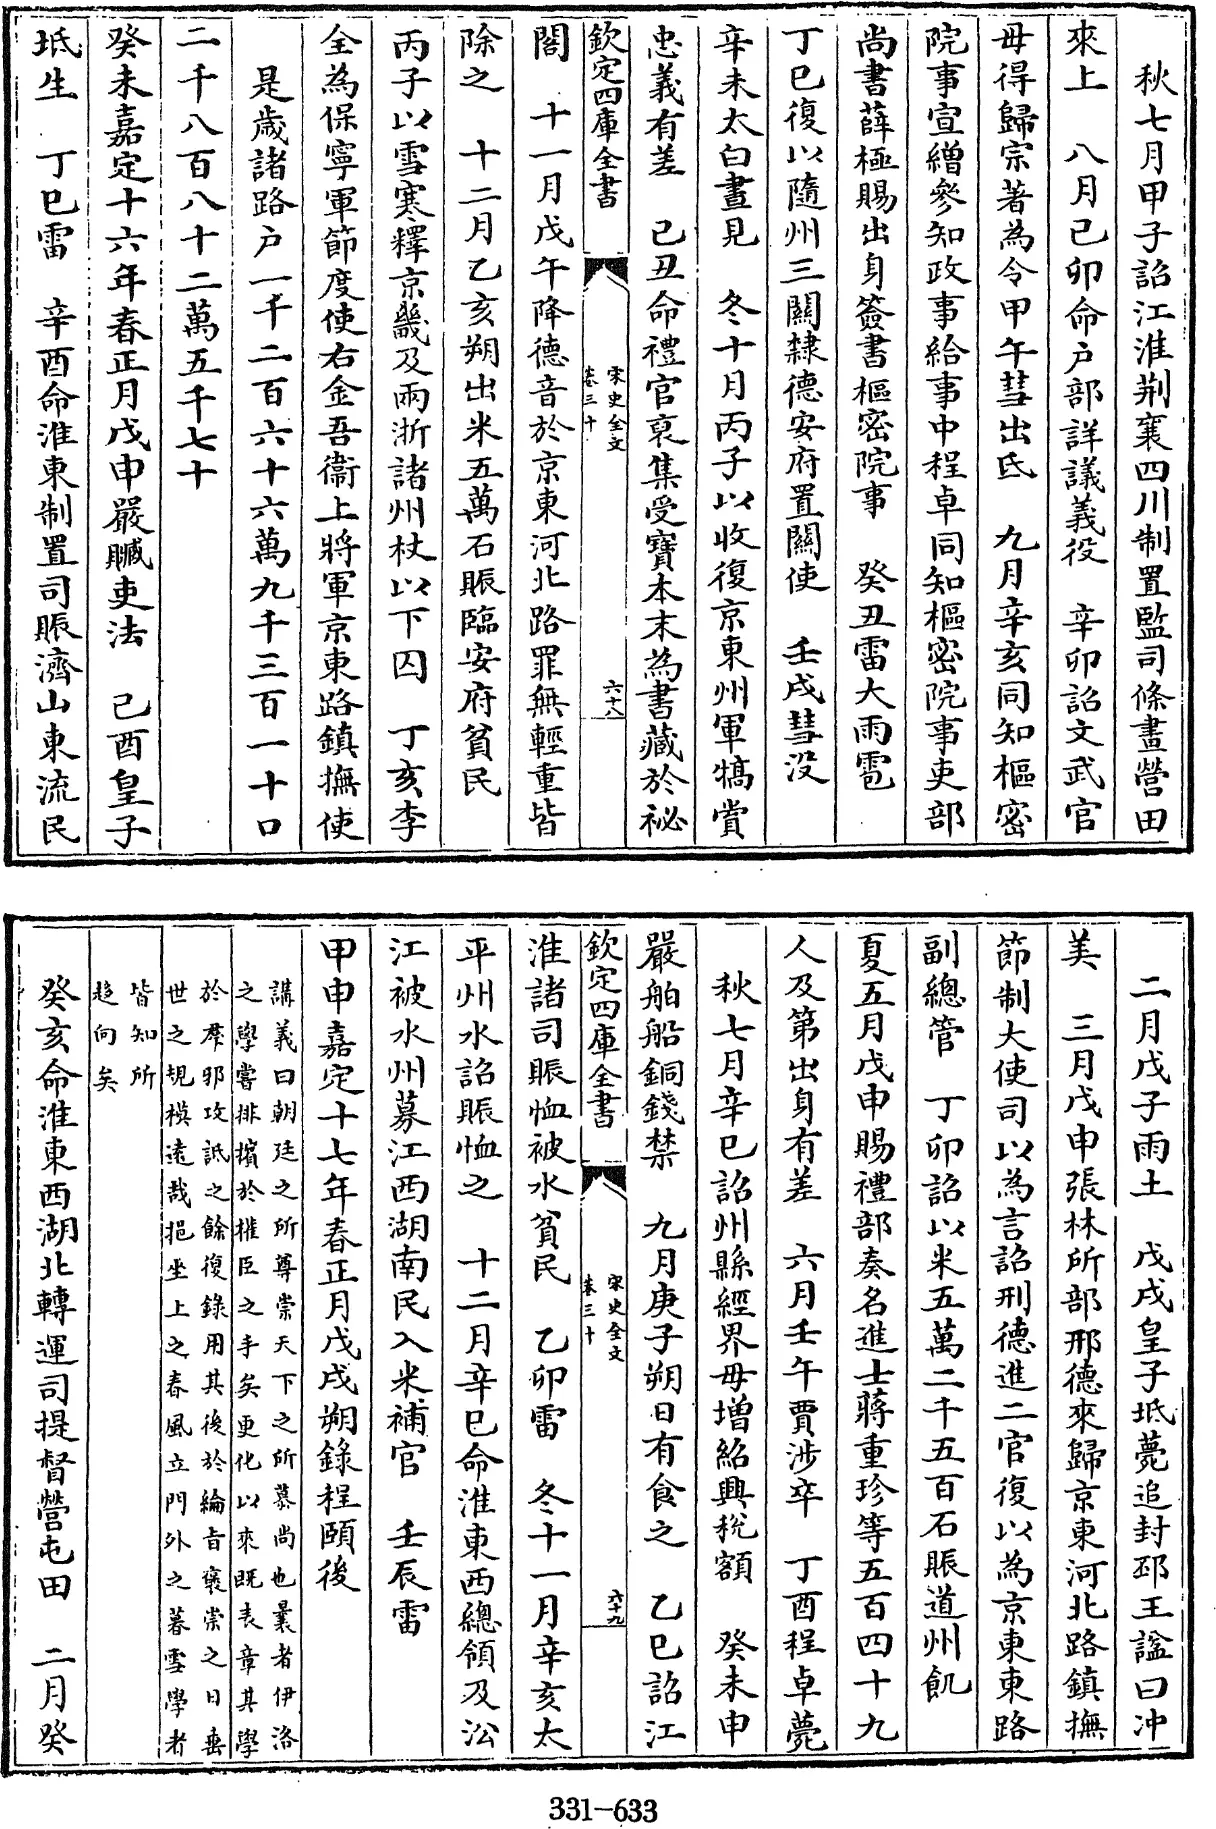 秋七月甲子詔江淮荆襄四川制置監司條畫營田
來上　八月己卯命户部詳議義役　辛卯詔文武官
毋得歸宗著為令甲午彗出氐　九月辛亥同知樞密
院事宣繒參知政事給事中程卓同知樞密院事吏部
尚書薛極賜出身簽書樞密院事　癸丑雷大雨雹
丁巳復以隨州三關隸德安府置關使　壬戌彗没
辛未太白晝見　冬十月丙子以收復京東州軍犒賞
忠義有差　己丑命禮官裒集受寶本末為書藏於祕
欽定四庫全書
宋史全文
卷三十
六十八
閣　十一月戊午降德音於京東河北路罪無輕重皆
除之　十二月乙亥朔出米五萬石賑臨安府貧民
丙子以雪寒釋京畿及兩浙諸州杖以下囚　丁亥李
全為保寧軍節度使右金吾衛上將軍京東路鎮撫使
是歲諸路户一千二百六十六萬九千三百一十口
二千八百八十二萬五千七十
癸未嘉定十六年春正月戊申嚴贓吏法　己酉皇子
坻生　丁巳雷　辛酉命淮東制置司賑濟山東流民
二月戊子雨土　戊戌皇子坻薨追封邳王謚曰沖
美　三月戊申張林所部邢德來歸京東河北路鎮撫
節制大使司以為言詔刑德進二官復以為京東東路
副總管　丁卯詔以米五萬二千五百石賑道州飢
夏五月戊申賜禮部奏名進士蔣重珍等五百四十九
人及第出身有差　六月壬午賈涉卒　丁酉程卓薨
秋七月辛巳詔州縣經界毋增紹興税額　癸未申
嚴舶船銅錢禁　九月庚子朔日有食之　乙巳詔江
欽定四庫全書
宋史全文
卷三十
六十九
淮諸司賑恤被水貧民　乙卯雷　冬十一月辛亥太
平州水詔賑恤之　十二月辛巳命淮東西總領及㳂
江被水州募江西湖南民入米補官　壬辰雷
甲申嘉定十七年春正月戊戌朔錄程頤後
講義曰朝廷之所尊崇天下之所慕尚也曩者伊洛
之學嘗排擯於權臣之手矣更化以來既表章其學
於羣邪攻詆之餘復錄用其後於綸音褒崇之日垂
世之規模遠哉挹坐上之春風立門外之暮雪學者
皆知所
趨向矣
癸亥命淮東西湖北轉運司提督營屯田　二月癸
331-633